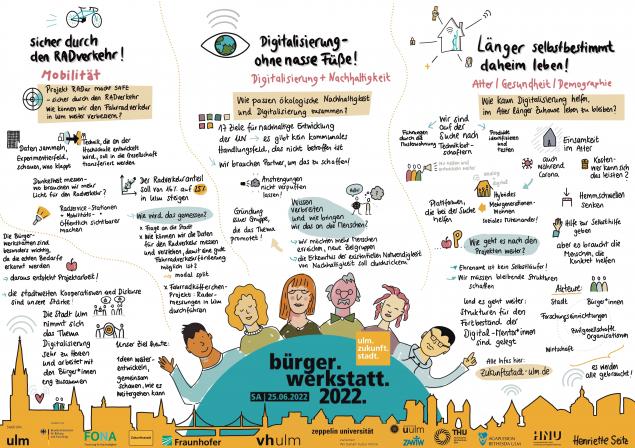 sicher durch
den RADverkehr!
Mobilität
Projekt RADar macht SAFE
- sicher durch den RADverkehr
Wie können wir den Fahrradverkehr
in Ulm weiter verbessern?
Daten sammeln,
Experimentierfeld,
schauen, was klappt
Technik, die an der
Hochschule entwickelt
wird, soll in die Gesellschaft
transferiert werden
Dunkelheit messen -
wo brauchen wir mehr
Licht für den Radverkehr?
Der Radverkehranteil
soll von 16% auf 25%
in Ulm steigen
Radservice-Stationen
+ Mobilitäts-
öffentlich sichtbarer
machen
Wie wird das gemessen?
x Frage an die Stadt
x Wie können wir die Daten
für den Radverkehr messen
und verstehen, damit eine gute
Fahrradverkehrsförderung
möglich ist?
modal split
x Fahrradköfferchen-
Projekt: Radar-
messungen in Ulm
durchführen
Die Bürger-
werkstätten sind
besonders wichtig,
da die echten Bedarfe
erkannt werden
→ daraus entsteht Projektarbeit!
→ die stadtweiten Kooperationen und Diskurse
sind unsere Stärke!
Die Stadt Ulm
nimmt sich
das Thema
Digitalisierung
sehr zu Herzen
und arbeitet mit
den Bürger*innen
eng zusammen
Unser Ziel heute:
Ideen weiter-
entwickeln,
gemeinsam
schauen, wie es
weitergehen kann
Digitalisierung-
ohne nasse Füße!
Digitalisierung + Nachhaltigkeit
Wie passen ökologische Nachhaltigkeit
und Digitalisierung zusammen?
17 Ziele für nachhaltige Entwicklung
der UN → es gibt kein kommunales
Handlungsfeld, das nicht betroffen ist
Wir brauchen Partner, um das zu schaffen!
Anstrengungen
nicht verpuffen
lassen!
Gründung
einer Gruppe,
die das Thema
promotet!
Wissen
verbreiten
und wie bringen
wir das an die Menschen?
Hallo!
→ wir möchten mehr Menschen
erreichen, neue Zielgruppen
→ die Erkenntnis der existenziellen Notwendigkeit
von Nachhaltigkeit soll durchsickern
Länger selbstbestimmt
daheim leben!
Alter / Gesundheit / Demographie
Wie kann Digitalisierung helfen,
im Alter länger zuhause leben zu bleiben?
Erfahrungen
durch die
Musterwohnung
Wir sind
auf der
Suche nach
Technikbot-
schaftern
Produkte
identifizieren
und testen
auch
während
Corona
Einsamkeit
im Alter
Kosten-
wer kann sich
das leisten?
Hemmschwellen
senken
Plattformen,
die bei der Suche
helfen
analog
digital
Hybides
Mehrgenerationen-
Wohnen
soziales Miteinander!
Hilfe zur Selbsthilfe
geben
aber es braucht die
Menschen, die
konkret helfen
Wie geht es nach den
Projekten weiter?
→ Ehrenamt ist kein Selbstläufer!
→ Wir müssen bleibende Strukturen
schaffen
Und es geht weiter:
Strukturen für den
Fortbestand der
Digital-Mentor*innen
sind gelegt
Akteure:
Stadt
Bürger*innen
Forschungseinrichtungen
Zivilgesellschafts-
Organisationen
Wirtschaft
→ es werden
alle gebraucht!
Alle Infos hier:
Zukunftsstadt-ulm.de
ulm.
zukunft.
stadt.
bürger.
werkstatt.
2022.
SA | 25.06.2022
ulm
FONA
Zukunftsstadt
Fraunhofer
vh ulm
zeppelin universität
uulm
ZAWiW
THU
AGAPLESION
BETHESDA ULM
HNU
Henriette Sats